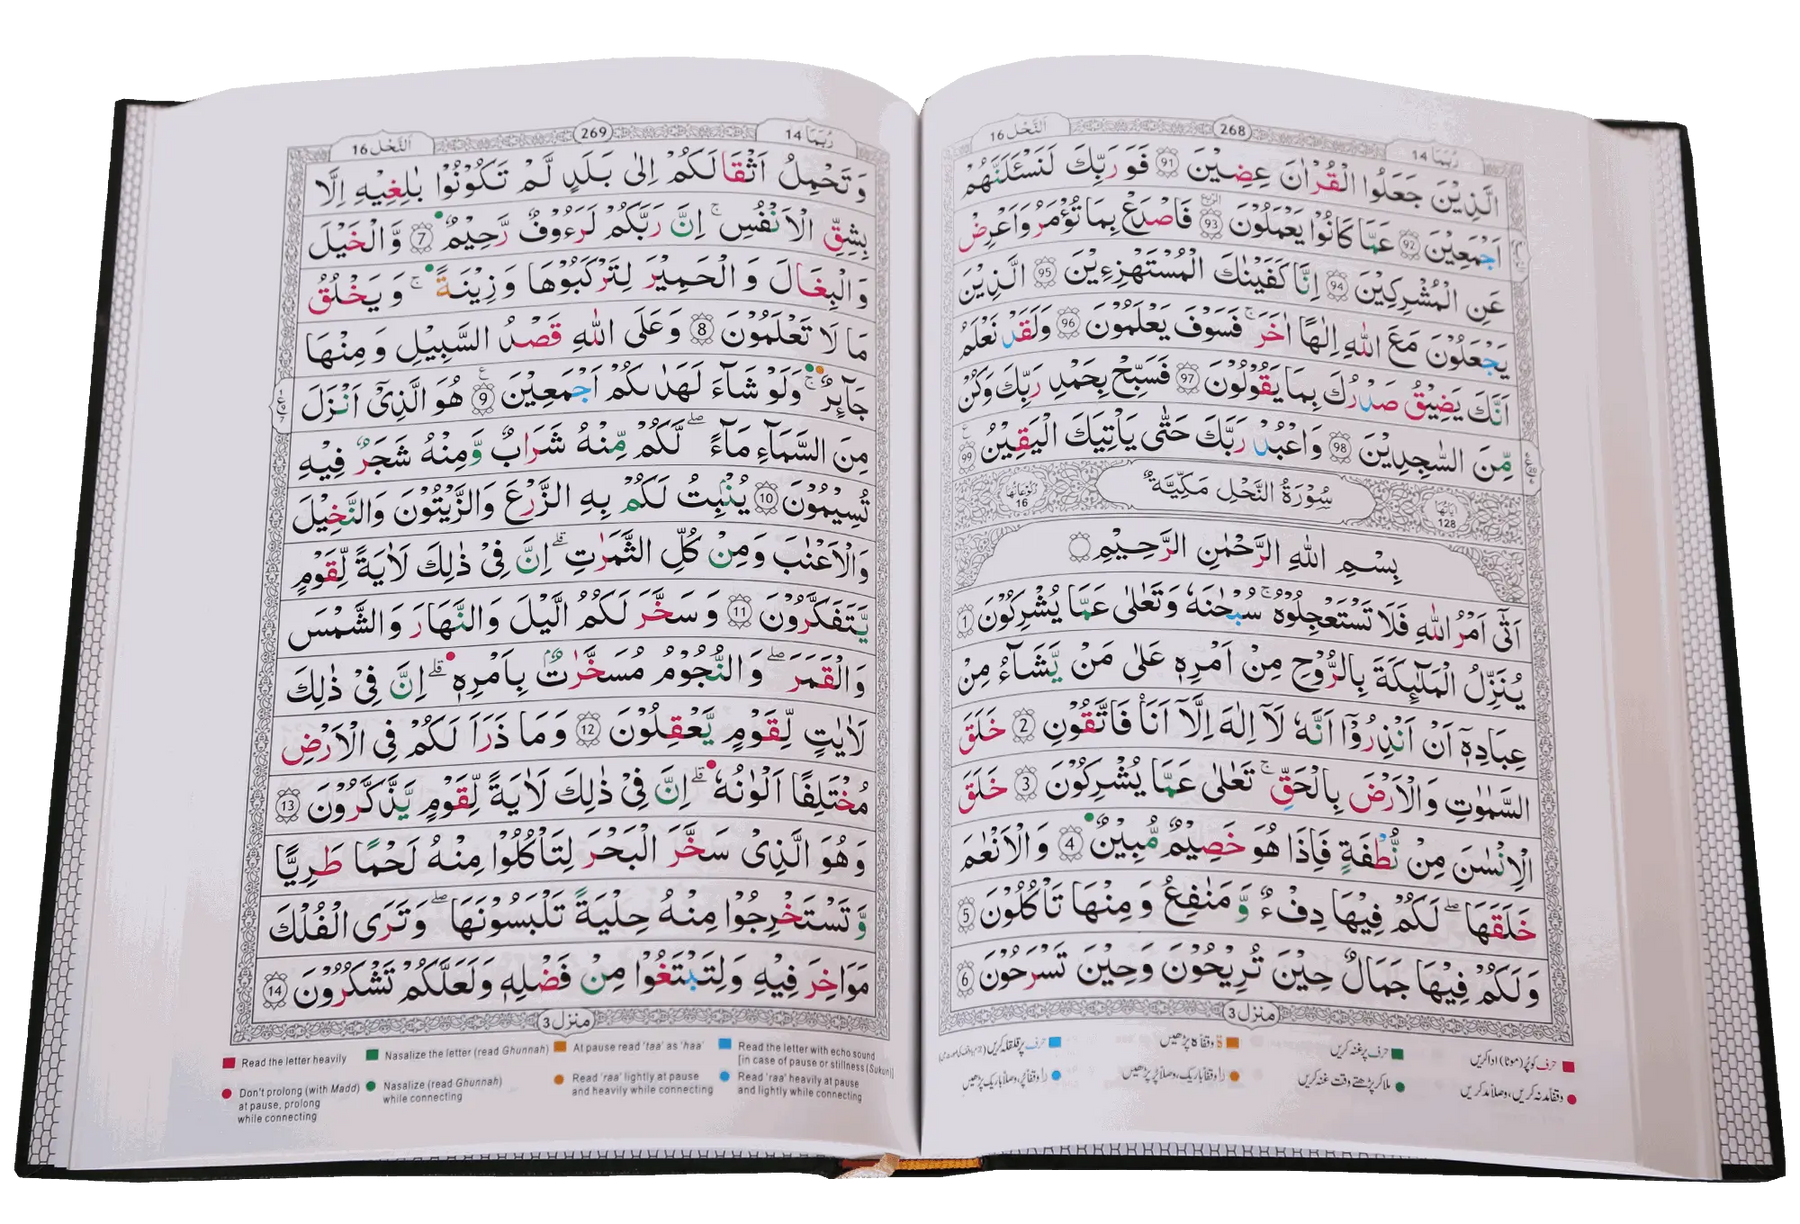 اَلنَّحْل 16
268
رُبَمَا 14
الَّذِيْنَ جَعَلُوا الْقُرْاٰنَ عِضِيْنَ 91 فَوَرَبِّكَ لَنَسْـَٔلَنَّهُمْ
اَجْمَعِيْنَ 92 عَمَّا كَانُوْا يَعْمَلُوْنَ 93 فَاصْدَعْ بِمَا تُؤْمَرُ وَاَعْرِضْ
عَنِ الْمُشْرِكِيْنَ 94 اِنَّا كَفَيْنٰكَ الْمُسْتَهْزِءِيْنَ 95 الَّذِيْنَ
يَجْعَلُوْنَ مَعَ اللّٰهِ اِلٰهًا اٰخَرَ ۚ فَسَوْفَ يَعْلَمُوْنَ 96 وَلَقَدْ نَعْلَمُ
اَنَّكَ يَضِيْقُ صَدْرُكَ بِمَا يَقُوْلُوْنَ 97 فَسَبِّحْ بِحَمْدِ رَبِّكَ وَكُنْ
مِّنَ السّٰجِدِيْنَ 98 وَاعْبُدْ رَبَّكَ حَتّٰى يَاْتِيَكَ الْيَقِيْنُ 99
اٰيَاتُهَا 128
سُوْرَةُ النَّحْلِ مَكِّيَّةٌ
رُكُوْعَاتُهَا 16
بِسْمِ اللّٰهِ الرَّحْمٰنِ الرَّحِيْمِ
اَتٰٓى اَمْرُ اللّٰهِ فَلَا تَسْتَعْجِلُوْهُ ۚ سُبْحٰنَهٗ وَتَعٰلٰى عَمَّا يُشْرِكُوْنَ 1
يُنَزِّلُ الْمَلٰٓئِكَةَ بِالرُّوْحِ مِنْ اَمْرِهٖ عَلٰى مَنْ يَّشَآءُ مِنْ
عِبَادِهٖٓ اَنْ اَنْذِرُوْٓا اَنَّهٗ لَآ اِلٰهَ اِلَّآ اَنَا فَاتَّقُوْنِ 2 خَلَقَ
السَّمٰوٰتِ وَالْاَرْضَ بِالْحَقِّ ۚ تَعٰلٰى عَمَّا يُشْرِكُوْنَ 3 خَلَقَ
الْاِنْسٰنَ مِنْ نُّطْفَةٍ فَاِذَا هُوَ خَصِيْمٌ مُّبِيْنٌ 4 وَالْاَنْعٰمَ
خَلَقَهَا ۖ لَكُمْ فِيْهَا دِفْءٌ وَّمَنٰفِعُ وَمِنْهَا تَاْكُلُوْنَ 5
وَلَكُمْ فِيْهَا جَمَالٌ حِيْنَ تُرِيْحُوْنَ وَحِيْنَ تَسْرَحُوْنَ 6
منزل 3
حرف کو پُر (موٹا) ادا کریں
حرف پر غنہ کریں
ۃ وقفاً ہ پڑھیں
حرف پر قلقلہ کریں
وقفاً مد نہ کریں، وصلاً مد کریں
ملا کر پڑھتے وقت غنہ کریں
را وقفاً باریک، وصلاً پُر پڑھیں
را وقفاً پُر، وصلاً باریک پڑھیں
اَلنَّحْل 16
269
رُبَمَا 14
وَتَحْمِلُ اَثْقَالَكُمْ اِلٰى بَلَدٍ لَّمْ تَكُوْنُوْا بٰلِغِيْهِ اِلَّا
بِشِقِّ الْاَنْفُسِ ۚ اِنَّ رَبَّكُمْ لَرَءُوْفٌ رَّحِيْمٌ 7 وَّالْخَيْلَ
وَالْبِغَالَ وَالْحَمِيْرَ لِتَرْكَبُوْهَا وَزِيْنَةً ۚ وَيَخْلُقُ
مَا لَا تَعْلَمُوْنَ 8 وَعَلَى اللّٰهِ قَصْدُ السَّبِيْلِ وَمِنْهَا
جَآئِرٌ ۚ وَلَوْ شَآءَ لَهَدٰىكُمْ اَجْمَعِيْنَ 9 هُوَ الَّذِيْٓ اَنْزَلَ
مِنَ السَّمَآءِ مَآءً ۖ لَّكُمْ مِّنْهُ شَرَابٌ وَّمِنْهُ شَجَرٌ فِيْهِ
تُسِيْمُوْنَ 10 يُنْۢبِتُ لَكُمْ بِهِ الزَّرْعَ وَالزَّيْتُوْنَ وَالنَّخِيْلَ
وَالْاَعْنٰبَ وَمِنْ كُلِّ الثَّمَرٰتِ ۗ اِنَّ فِيْ ذٰلِكَ لَاٰيَةً لِّقَوْمٍ
يَّتَفَكَّرُوْنَ 11 وَسَخَّرَ لَكُمُ الَّيْلَ وَالنَّهَارَ وَالشَّمْسَ
وَالْقَمَرَ ۖ وَالنُّجُوْمُ مُسَخَّرٰتٌۢ بِاَمْرِهٖ ۗ اِنَّ فِيْ ذٰلِكَ
لَاٰيٰتٍ لِّقَوْمٍ يَّعْقِلُوْنَ 12 وَمَا ذَرَاَ لَكُمْ فِى الْاَرْضِ
مُخْتَلِفًا اَلْوٰنُهٗ ۗ اِنَّ فِيْ ذٰلِكَ لَاٰيَةً لِّقَوْمٍ يَّذَّكَّرُوْنَ 13
وَهُوَ الَّذِيْ سَخَّرَ الْبَحْرَ لِتَاْكُلُوْا مِنْهُ لَحْمًا طَرِيًّا
وَّتَسْتَخْرِجُوْا مِنْهُ حِلْيَةً تَلْبَسُوْنَهَا ۖ وَتَرَى الْفُلْكَ
مَوَاخِرَ فِيْهِ وَلِتَبْتَغُوْا مِنْ فَضْلِهٖ وَلَعَلَّكُمْ تَشْكُرُوْنَ 14
منزل 3
Read the letter heavily
Nasalize the letter (read Ghunnah)
At pause read 'taa' as 'haa'
Read the letter with echo sound
[in case of pause or stillness (Sukun)]
Don't prolong (with Madd)
at pause, prolong
while connecting
Nasalize (read Ghunnah)
while connecting
Read 'raa' lightly at pause
and heavily while connecting
Read 'raa' heavily at pause
and lightly while connecting